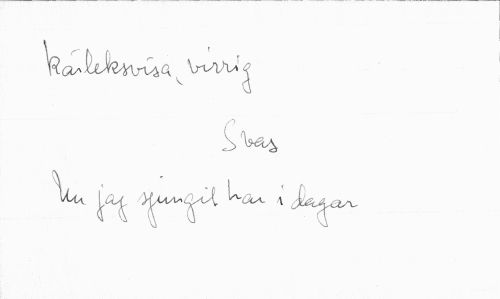 kärleksvisa, virrig
Svas
Nu jag sjungit har i dagar